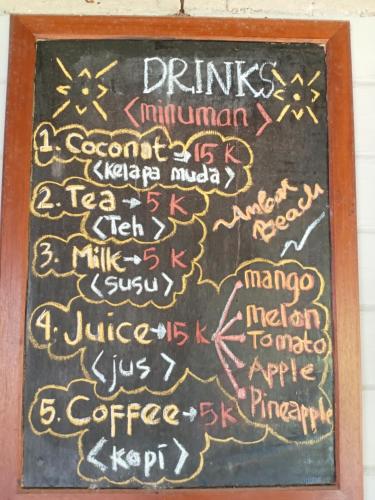 DRINKS
<minuman>
1. Coconat → 15 K
<kelapa muda>
2. Tea → 5 K
<Teh>
3. Milk → 5 K
<susu>
4. Juice → 15 K
<jus>
5. Coffee → 5K
<kopi>
~ Ambar
Beach ~
mango
melon
Tomato
Apple
Pineapple